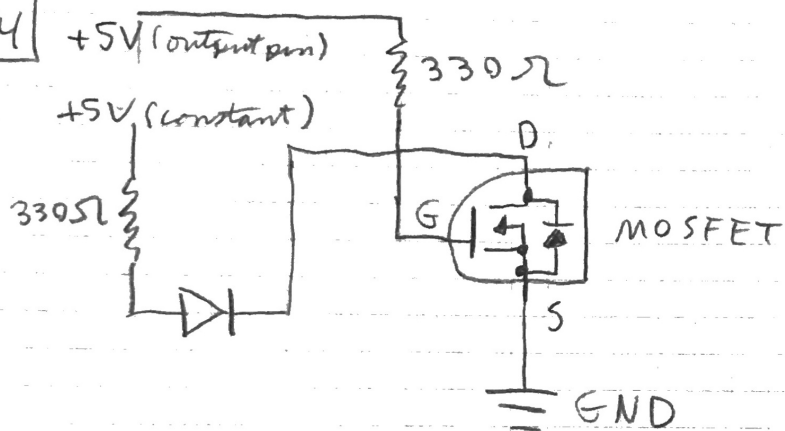 4
+5V (output pin)
330Ω
+5V (constant)
D
330Ω
G
MOSFET
S
GND